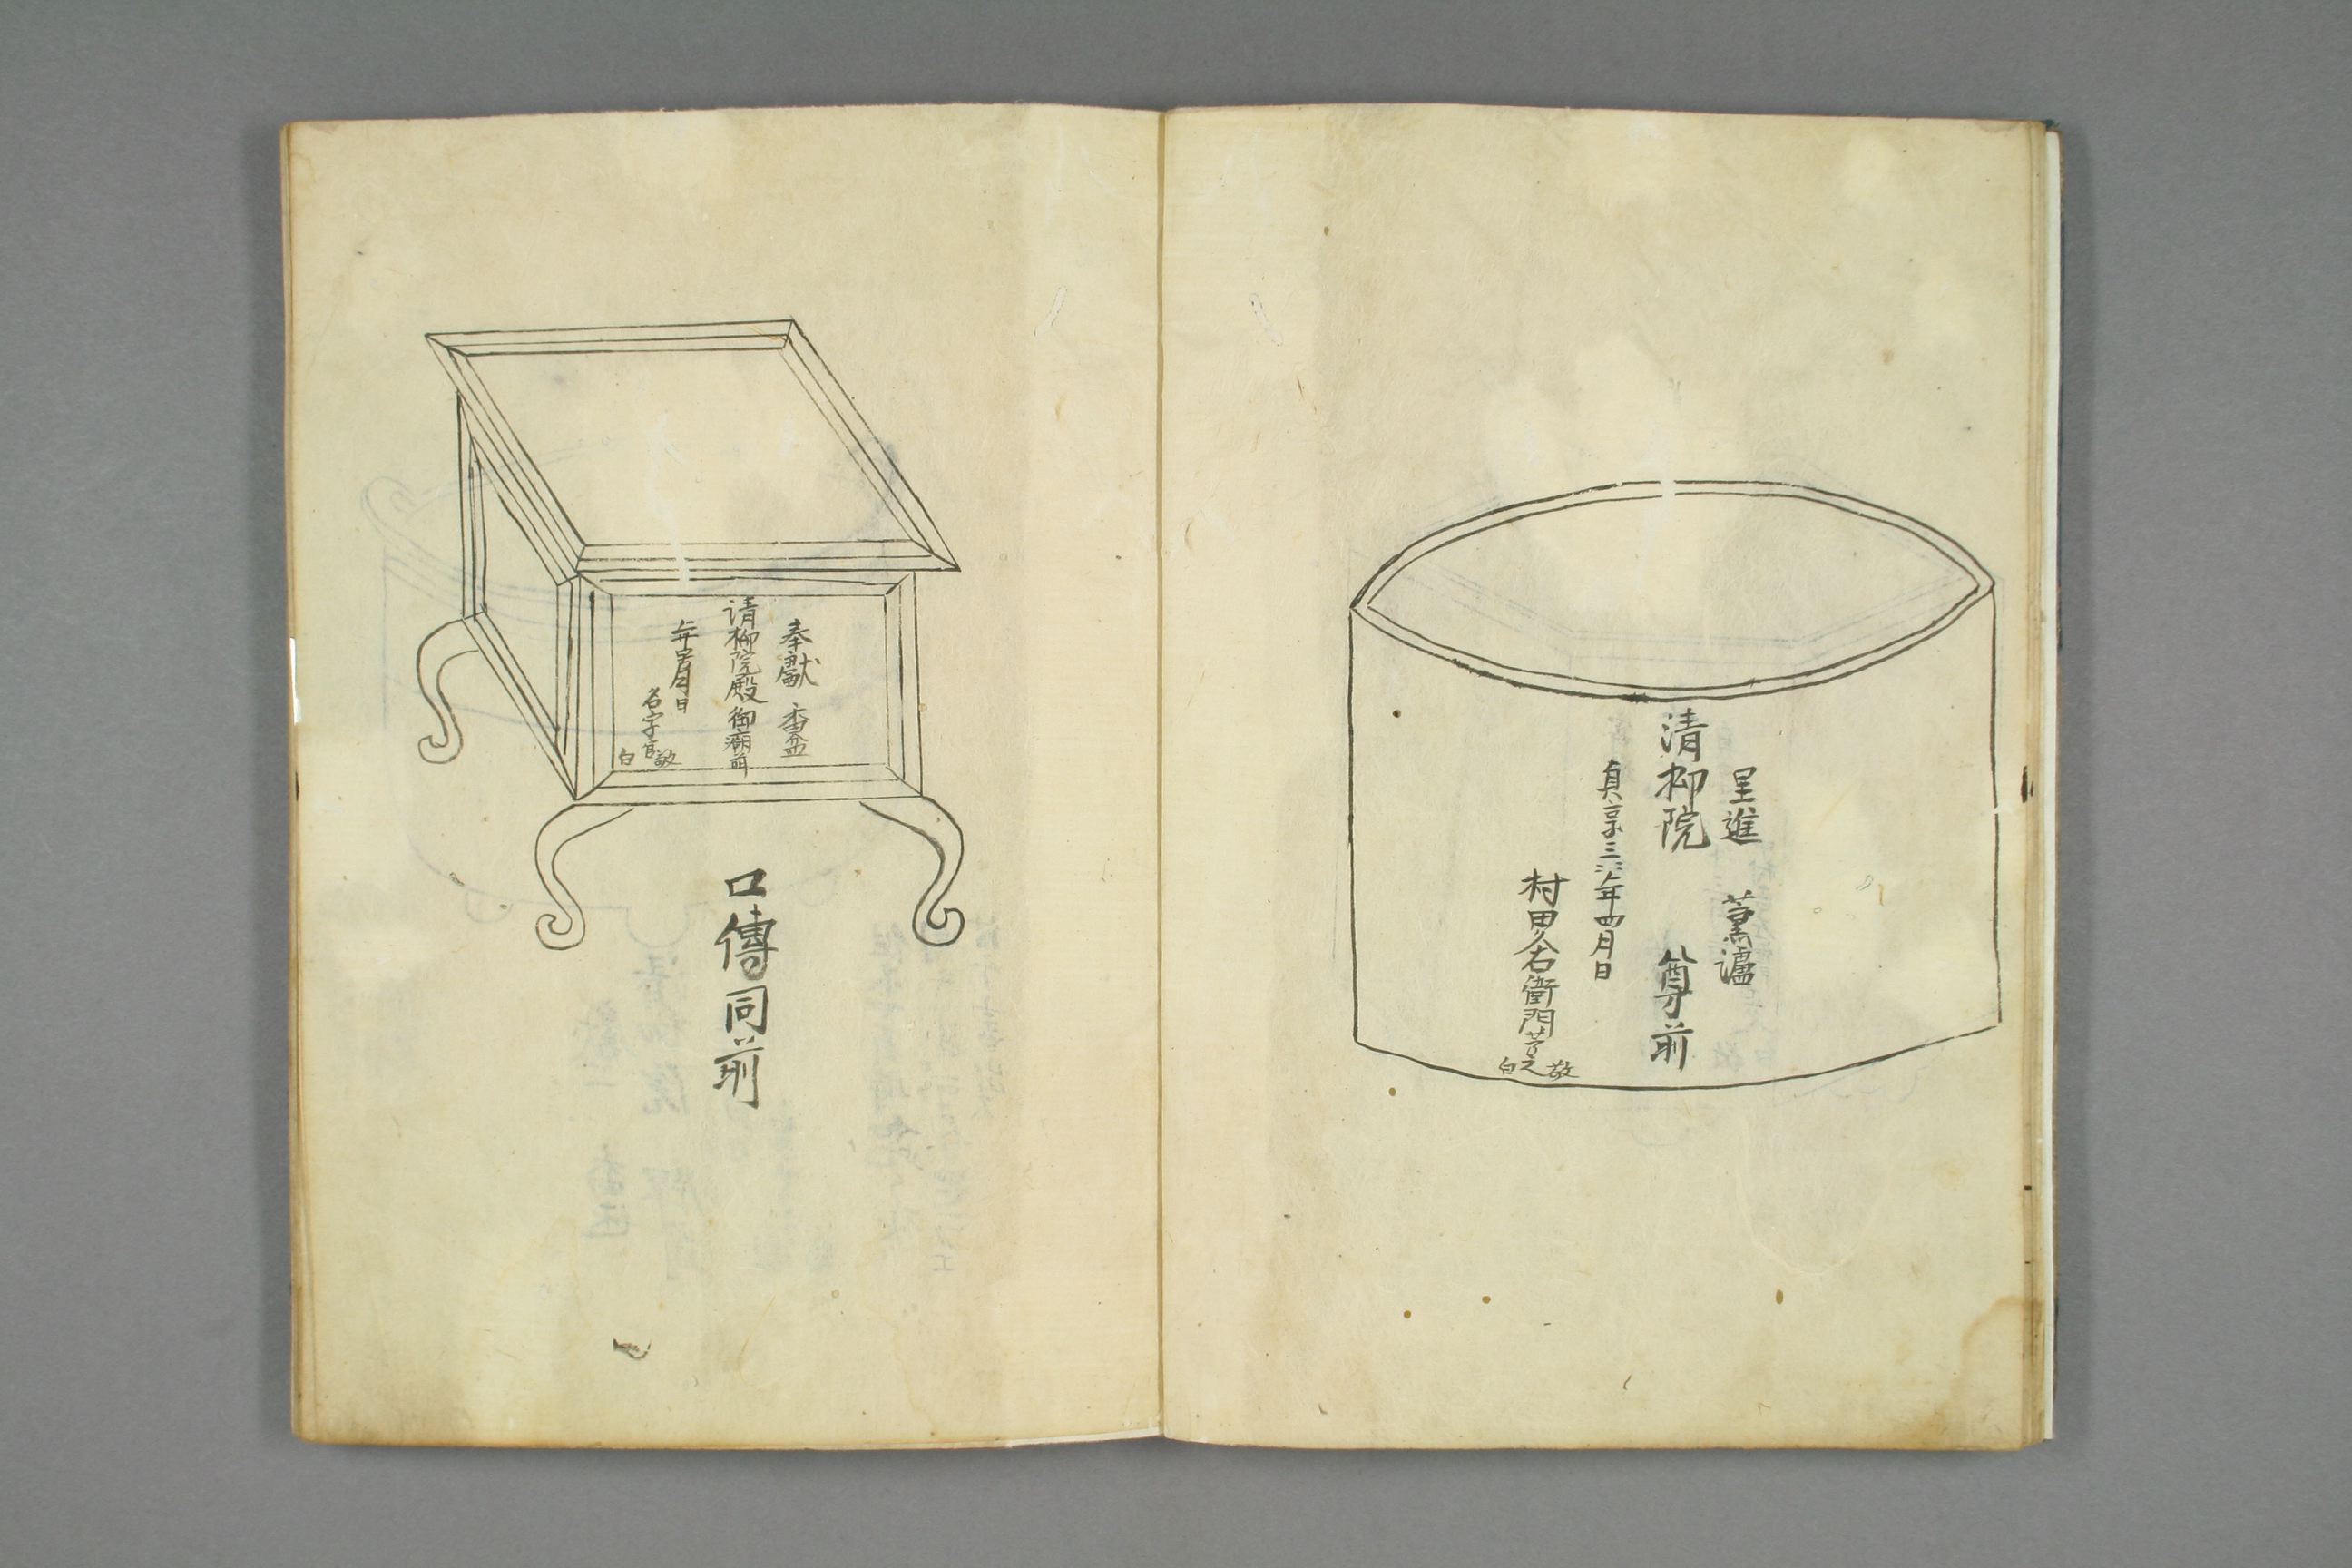 呈進 薫濾
清柳院 尊前
貞享三年四月日
村田久右衛門
敬白
奉獻 香盆
请柳院殿御廟前
年号月日
名字官敬白
口傳同前